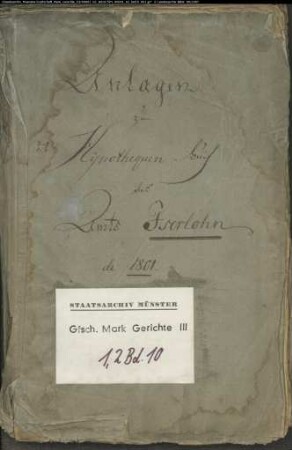 Anlagen
zum
Hÿpothequen Buch
des
Amts Iserlohn
de 1801
STAATSARCHIV MÜNSTER
Gfsch. Mark Gerichte III
1,2 Bd. 10